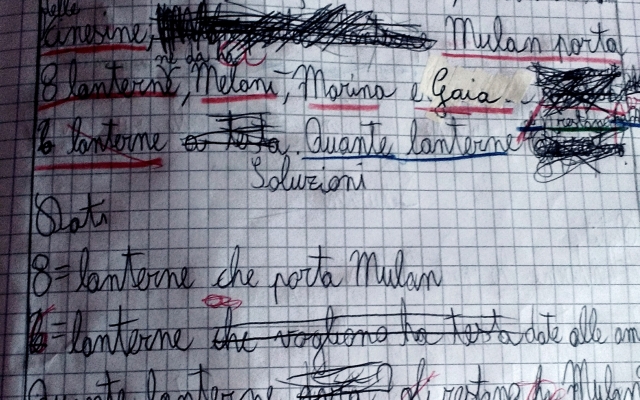 delle
cinesine, Mulan porta
ne dà
8 lanterne, Melani, Marina e Gaia.
6 lanterne a testa. Quante lanterne
Soluzioni
Dati
8= lanterne che porta Mulan
6= lanterne che vogliono ha testa date alle am
Quante lanterne restano Mulan